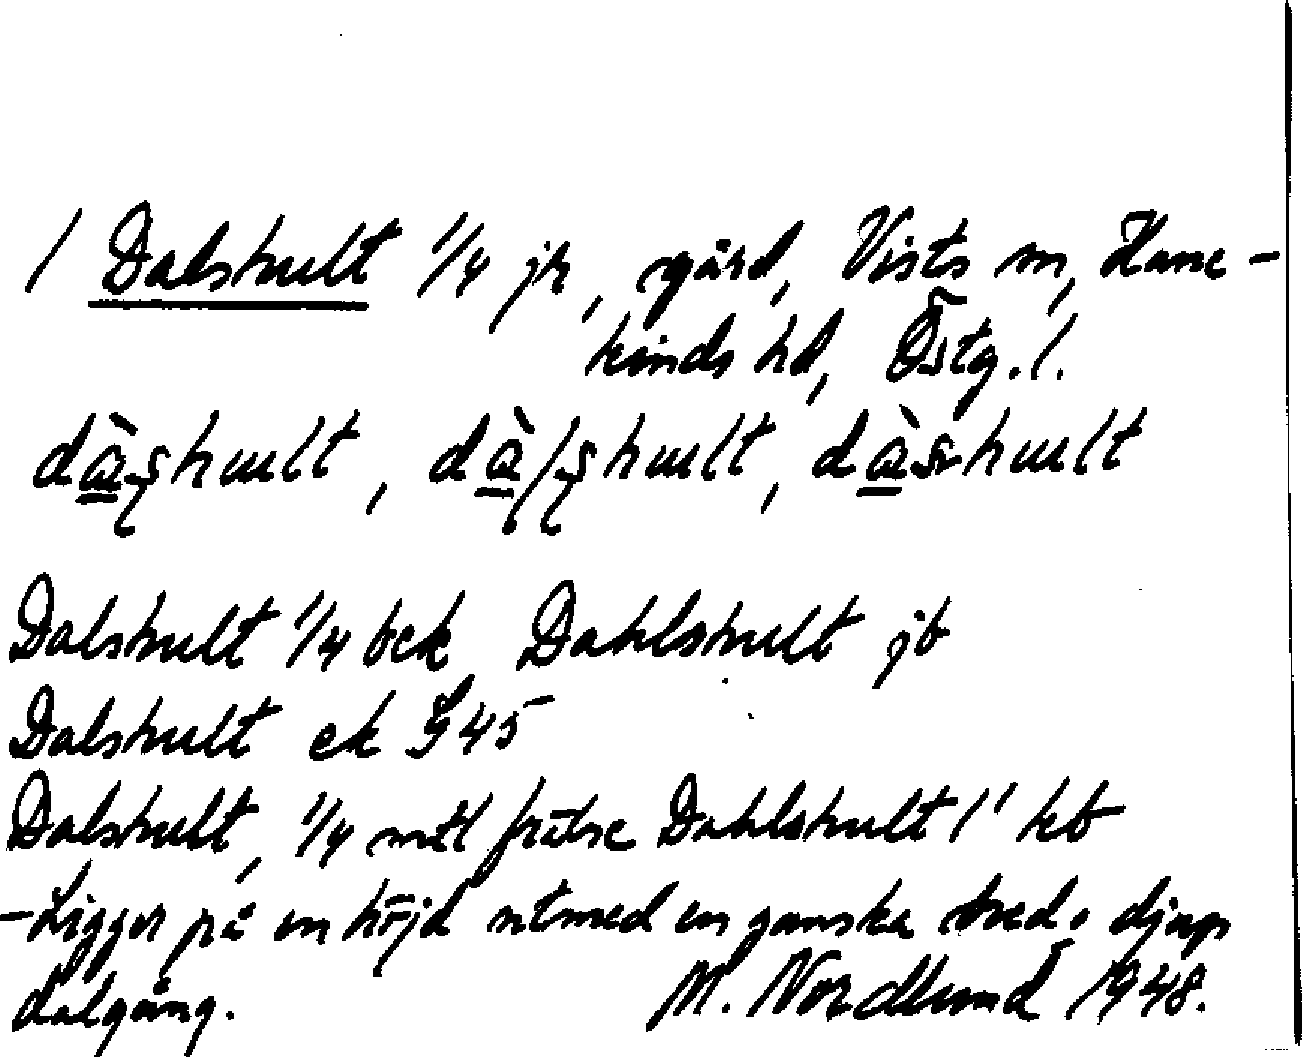 1 Dalshult 1/4 jk, gård, Vists sn, Hane-
kinds hd, Östg. l.
Dalshult 1/4 bek Dahlshult jb
Dalshult ek S 45
Dalshult, 1/4 mtl frälse Dahlshult 1' kb
-Ligger på en höjd utmed en ganska bred o djup
dalgång. M. Nordlund 1948.